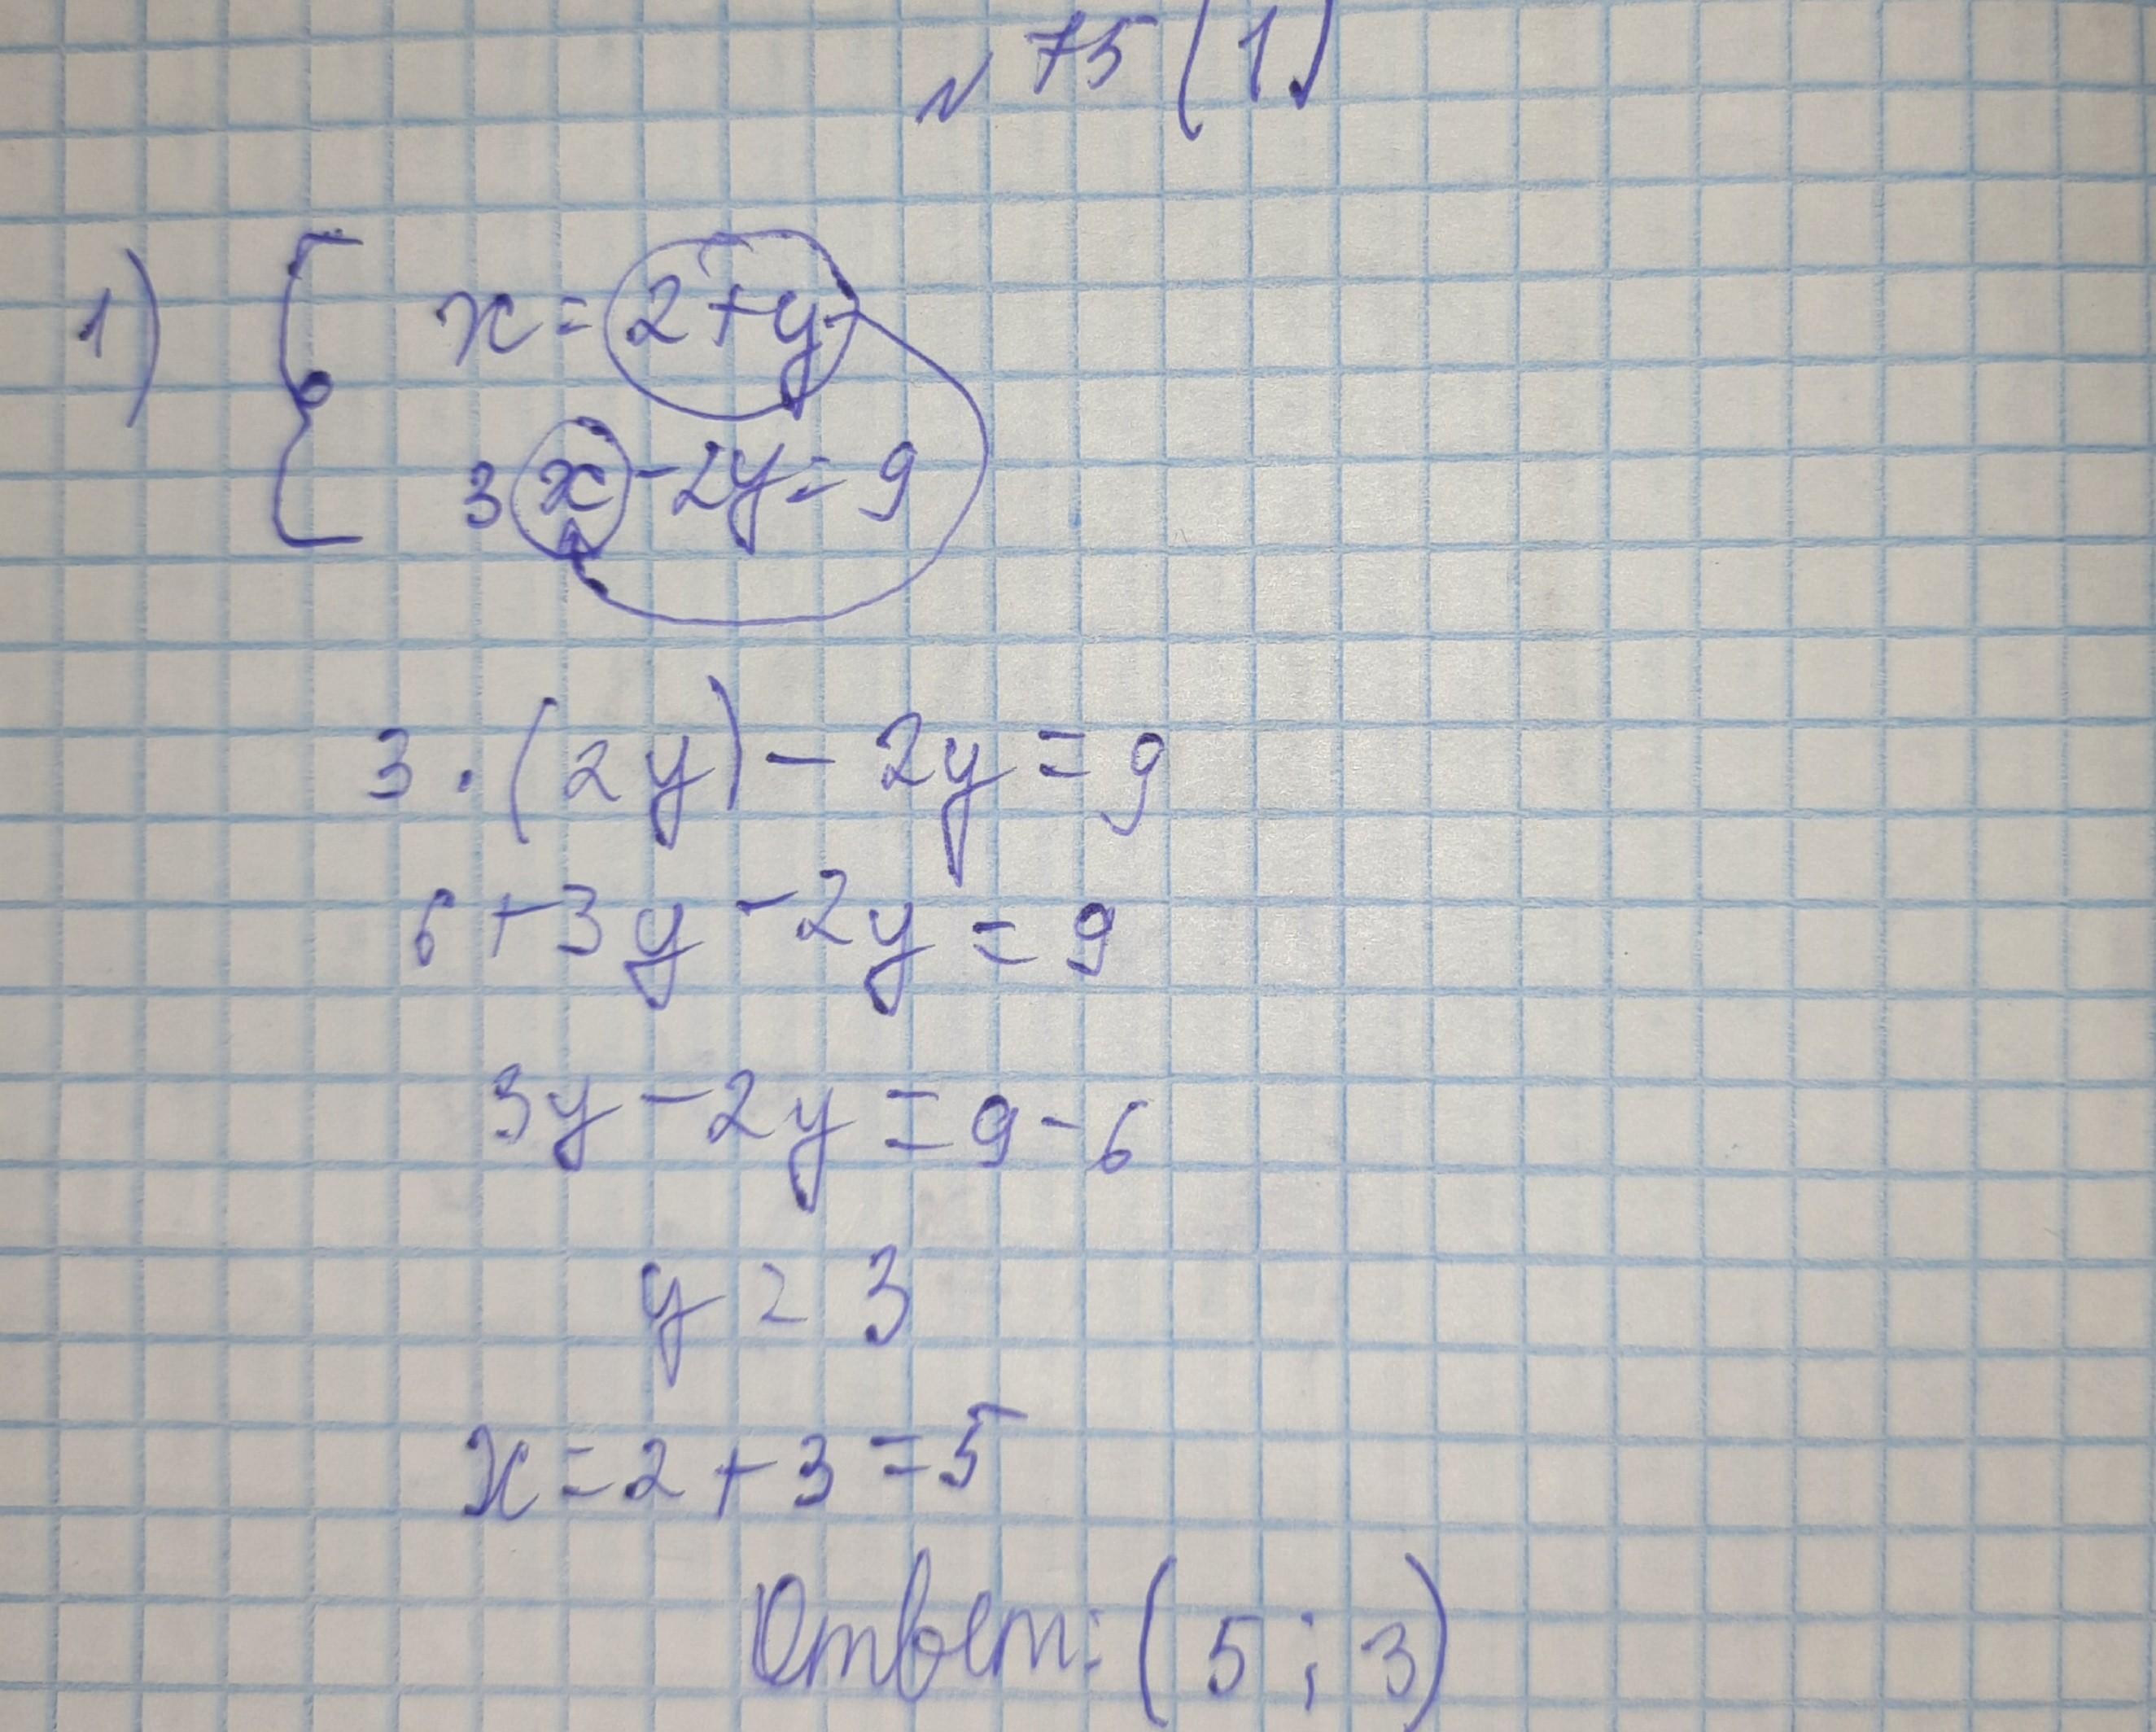 № 75 (1)
1) { x = 2 + y
3x - 2y = 9
3 · (2y) - 2y = 9
6 + 3y - 2y = 9
3y - 2y = 9 - 6
y = 3
x = 2 + 3 = 5
Ответ: (5; 3)